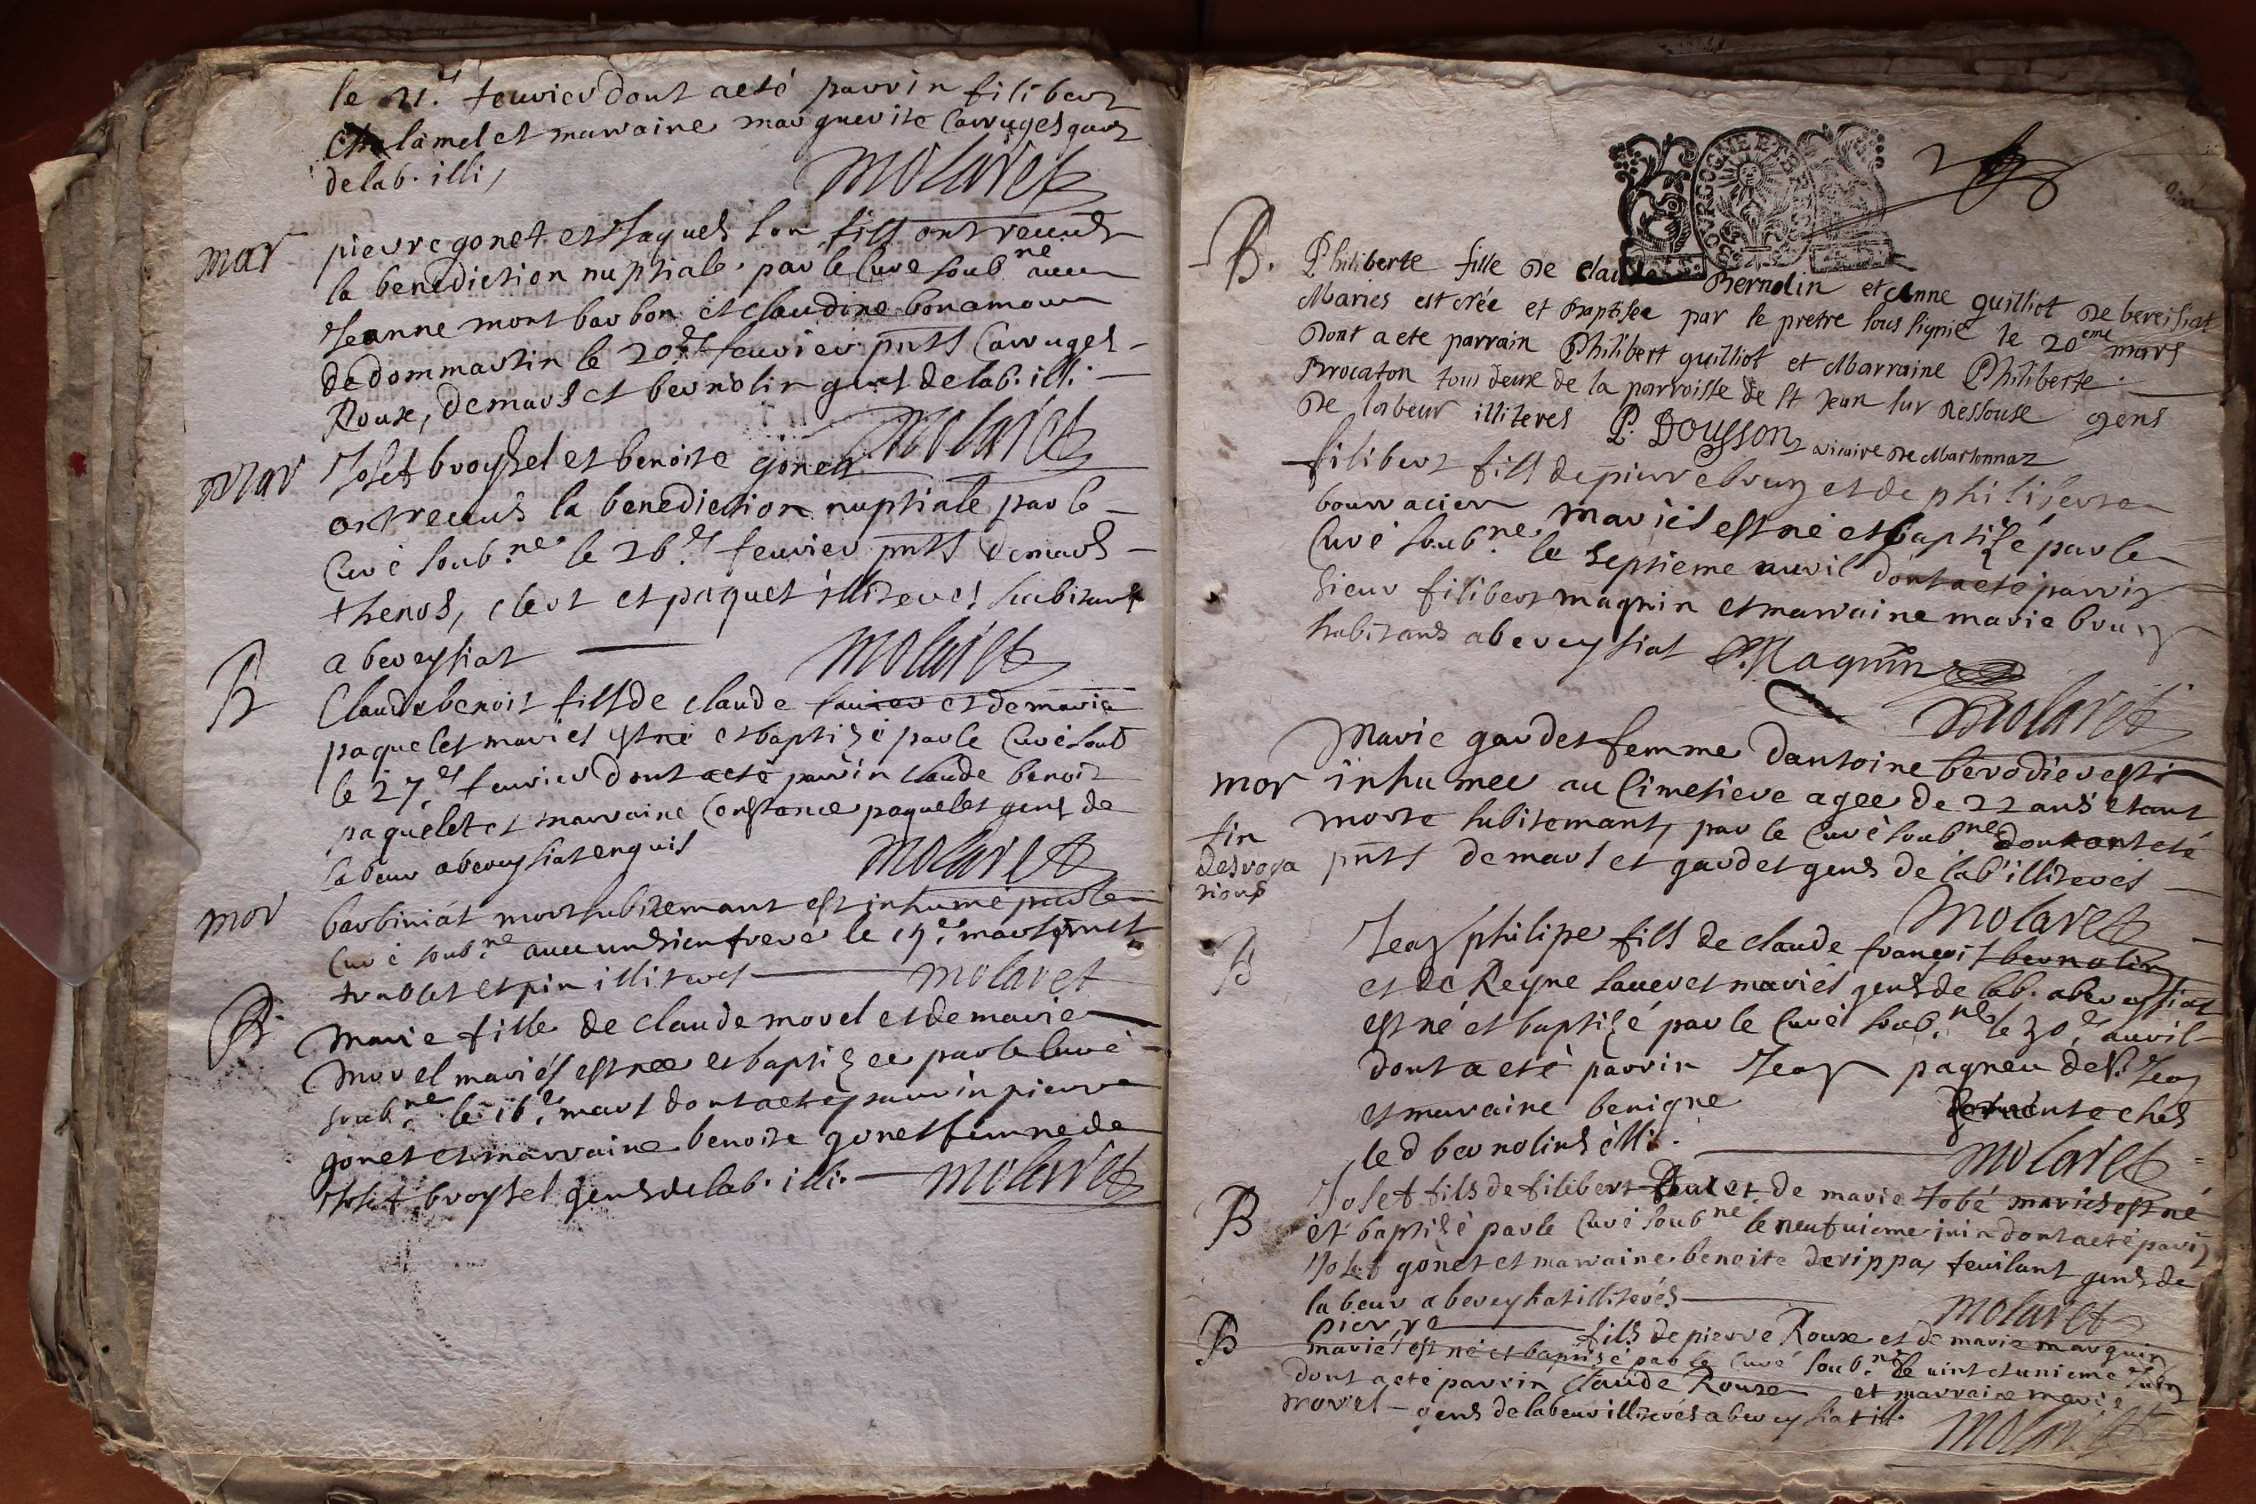 le 21.e feurier dont a eté parrin filibert
Chalamel et marraine marguerite Carruges gens
de lab. illi,
molaret
mar
pierre gonet et Jaques son fils ont receus
la benediction nuptiale par le Curé soub.ne auec
Jeanne mont barbon et claudine bonamour
de dommartin le 20.e feurier pnts Carruges
Roux, demars et bernolin gens de lab. illi.
molaret
mar
Josef broyset et benoite gonet
ont receus la benediction nuptiale par le
Curé soub.ne le 26.e feurier pnts demars
thenos, clert et paquet illiteres habitans
a bereysiat
molaret
B
Claude benoit fils de claude et de marie
paquelet mariés est né et baptizé par le Curé soub
le 27.e feurier dont a eté parrin claude benoit
paquelet et marraine Constance paquelet gens de
labeur a bereysiat enquis
molaret
mor
barbiniat mort subitemant est inhumé par le
Curé soub.ne auec un sien frere le mars pnts
et pin illiteres
molaret
B
marie fille de claude morel et de marie
morel mariés est née et baptizée par le Curé
soub.ne le 16.e mars dont a eté parrin pierre
gonet et marraine benoite gonet femme de
Josef broyset gens de lab. illi.
molaret
BOURGOGNE ET BRESSE
B.
Philiberte fille de claude Bernolin et Anne guilliot de bereisiat
Maries est née et Baptisée par le pretre sous signé le 20eme mars
Dont a ete parrain Philibert guilliot et Marraine Philiberte
Brocaton tous deux de la parroisse de st Jean sur Ressouse gens
de labeur illiteres P. Dousson vicaire de Marsonnaz
filibert fils de pierre brun et de philiberte
bourracier mariés est né et baptizé par le
Curé soub.ne le septieme auril dont a eté parrin
sieur filibert magnin et marraine marie brun
habitans a bereysiat Magnin
molaret
mor
Marie gardet femme dantoine berodier est
inhumee au Cimetiere agee de 22 ans etant
morte subitemant, par le Curé soub.ne dont ont eté
pnts demars et gardet gens de lab. illiteres
fin
des roga
tions
molaret
B
Jean philipe fils de claude françois bernolin
et de Reyne sauert mariés gens de lab. a bereysiat
est né et baptizé par le Curé soub.ne le 30.e auril
dont a eté parrin Jean pagneu de St. Jean
et maraine benigne seruante chés
led bernolins illi.
molaret
B
Josef fils de filibert et de marie Jobé mariés est né
et baptizé par le Curé soub.ne le neufuieme juin dont a eté parin
Josef gonet et marraine benoite derippa, feuilant gens de
labeur a bereysiat illiterés
molaret
B
pierre fils de pierre Roux et de marie marguin
mariés est né et baptizé par le Curé soub.ne le uint et unieme Juin
dont a eté parrin claude Roux et marraine marie
morel gens de labeur illiterés a bereysiat ill.
molaret